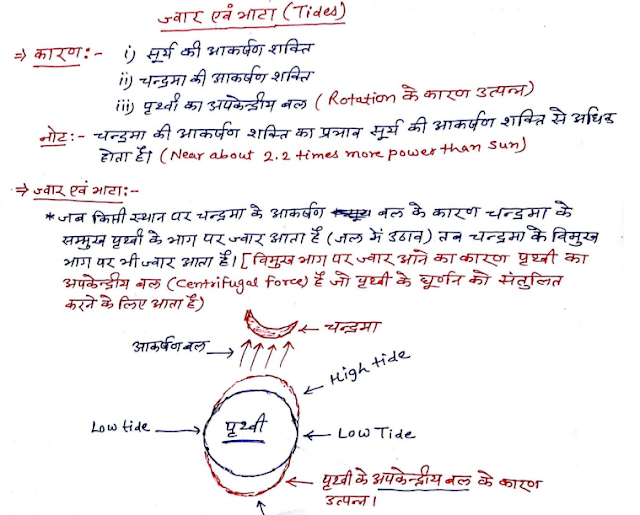 ज्वार एवं भाटा (Tides)
⇒ कारण:- i) सूर्य की आकर्षण शक्ति
ii) चन्द्रमा की आकर्षण शक्ति
iii) पृथ्वी का अपकेन्द्रीय बल (Rotation के कारण उत्पन्न)
नोट:- चन्द्रमा की आकर्षण शक्ति का प्रभाव सूर्य की आकर्षण शक्ति से अधिक
होता है। (Near about 2.2 times more power than sun)
⇒ ज्वार एवं भाटा:-
* जब किसी स्थान पर चन्द्रमा के आकर्षण बल के कारण चन्द्रमा के
सम्मुख पृथ्वी के भाग पर ज्वार आता है (जल में उठाव) तब चन्द्रमा के विमुख
भाग पर भी ज्वार आता है। [विमुख भाग पर ज्वार आने का कारण पृथ्वी का
अपकेन्द्रीय बल (Centrifugal force) है जो पृथ्वी के घूर्णन को संतुलित
करने के लिए आता है)
चन्द्रमा
आकर्षण बल
High tide
Low tide
पृथ्वी
Low Tide
पृथ्वी के अपकेन्द्रीय बल के कारण
उत्पन्न।